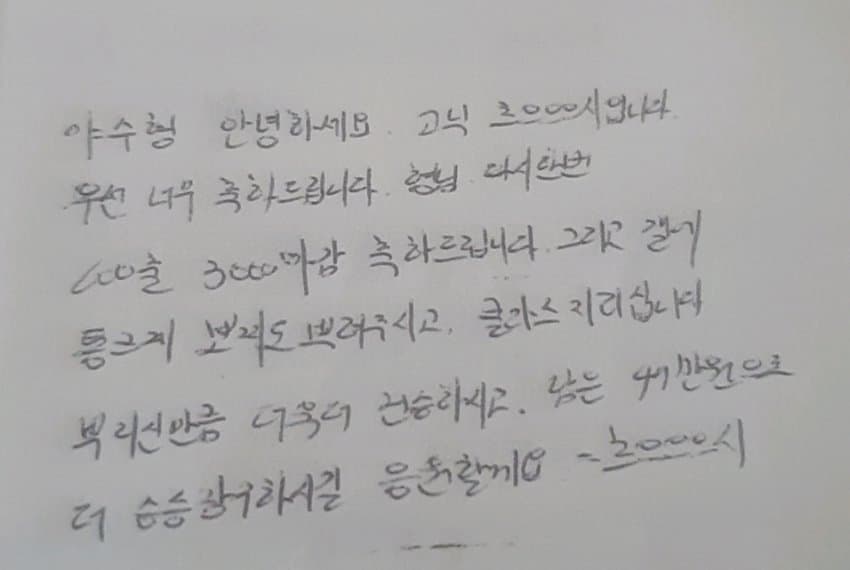 야수형 안녕하세요. 고닉 ㅊㅇㅇㅇㅇ시입니다.
우선 너무 축하드립니다. 형님 다시한번
600출 3000마감 축하드립니다. 그리고 갤에
통크게 뽀찌도 뿌려주시고. 클라스 지리십니다
뿌리신만큼 더욱더 건승하시고. 남은 47만원으로
더 승승장구하시길 응원할게요 - ㅊㅇㅇㅇㅇ시